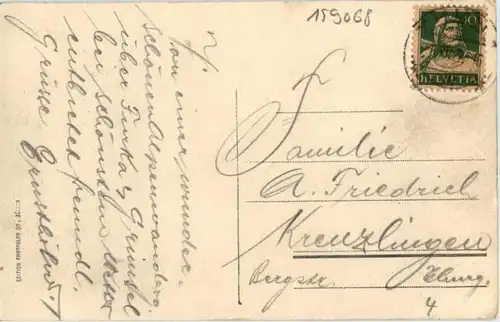 159068
10
HELVETIA
Von einer wunder-
schönen Alpenwanderg.
über Furka & Grimsel
bei schönstem Wetter
entbietet freundl.
Grüsse
Familie
A. Friedrich
Kreuzlingen
Bergstr.
4